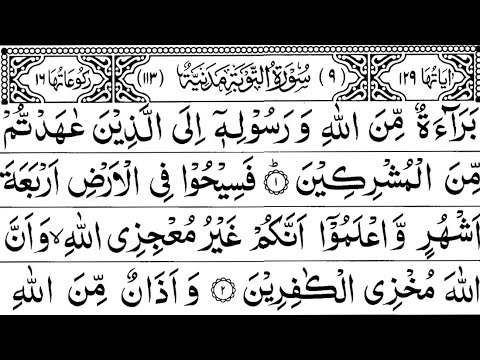 اٰیَاتُهَا ۱۲۹ (۹) سُوْرَةُ التَّوْبَةِ مَدَنِیَّةٌ (۱۱۳) رُكُوْعَاتُهَا ۱۶
بَرَآءَةٌ مِّنَ اللّٰهِ وَ رَسُوْلِهٖۤ اِلَى الَّذِیْنَ عٰهَدْتُّمْ
مِّنَ الْمُشْرِكِیْنَ ؕ۱ فَسِیْحُوْا فِی الْاَرْضِ اَرْبَعَةَ
اَشْهُرٍ وَّ اعْلَمُوْۤا اَنَّكُمْ غَیْرُ مُعْجِزِی اللّٰهِ ۙ وَ اَنَّ
اللّٰهَ مُخْزِی الْكٰفِرِیْنَ ۲ وَ اَذَانٌ مِّنَ اللّٰهِ